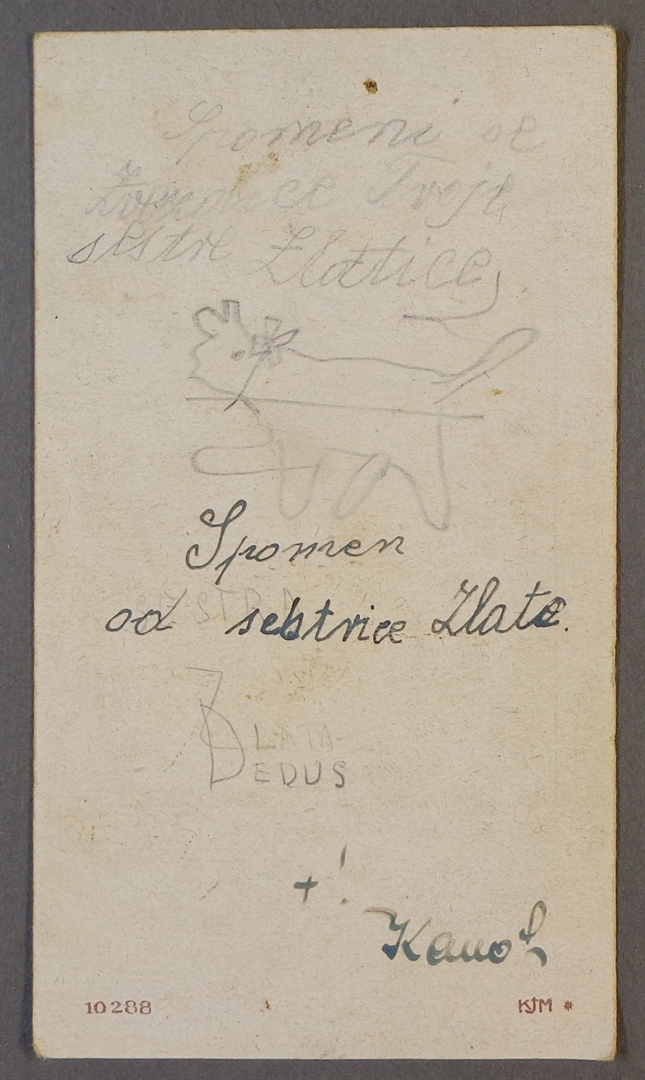 Spomeni se
Zvezdice Tvoje
sestre Zlatice
Spomen
SESTRA
od sestrice Zlate.
ZLATA
DEDUS
+!
10288
KJM *